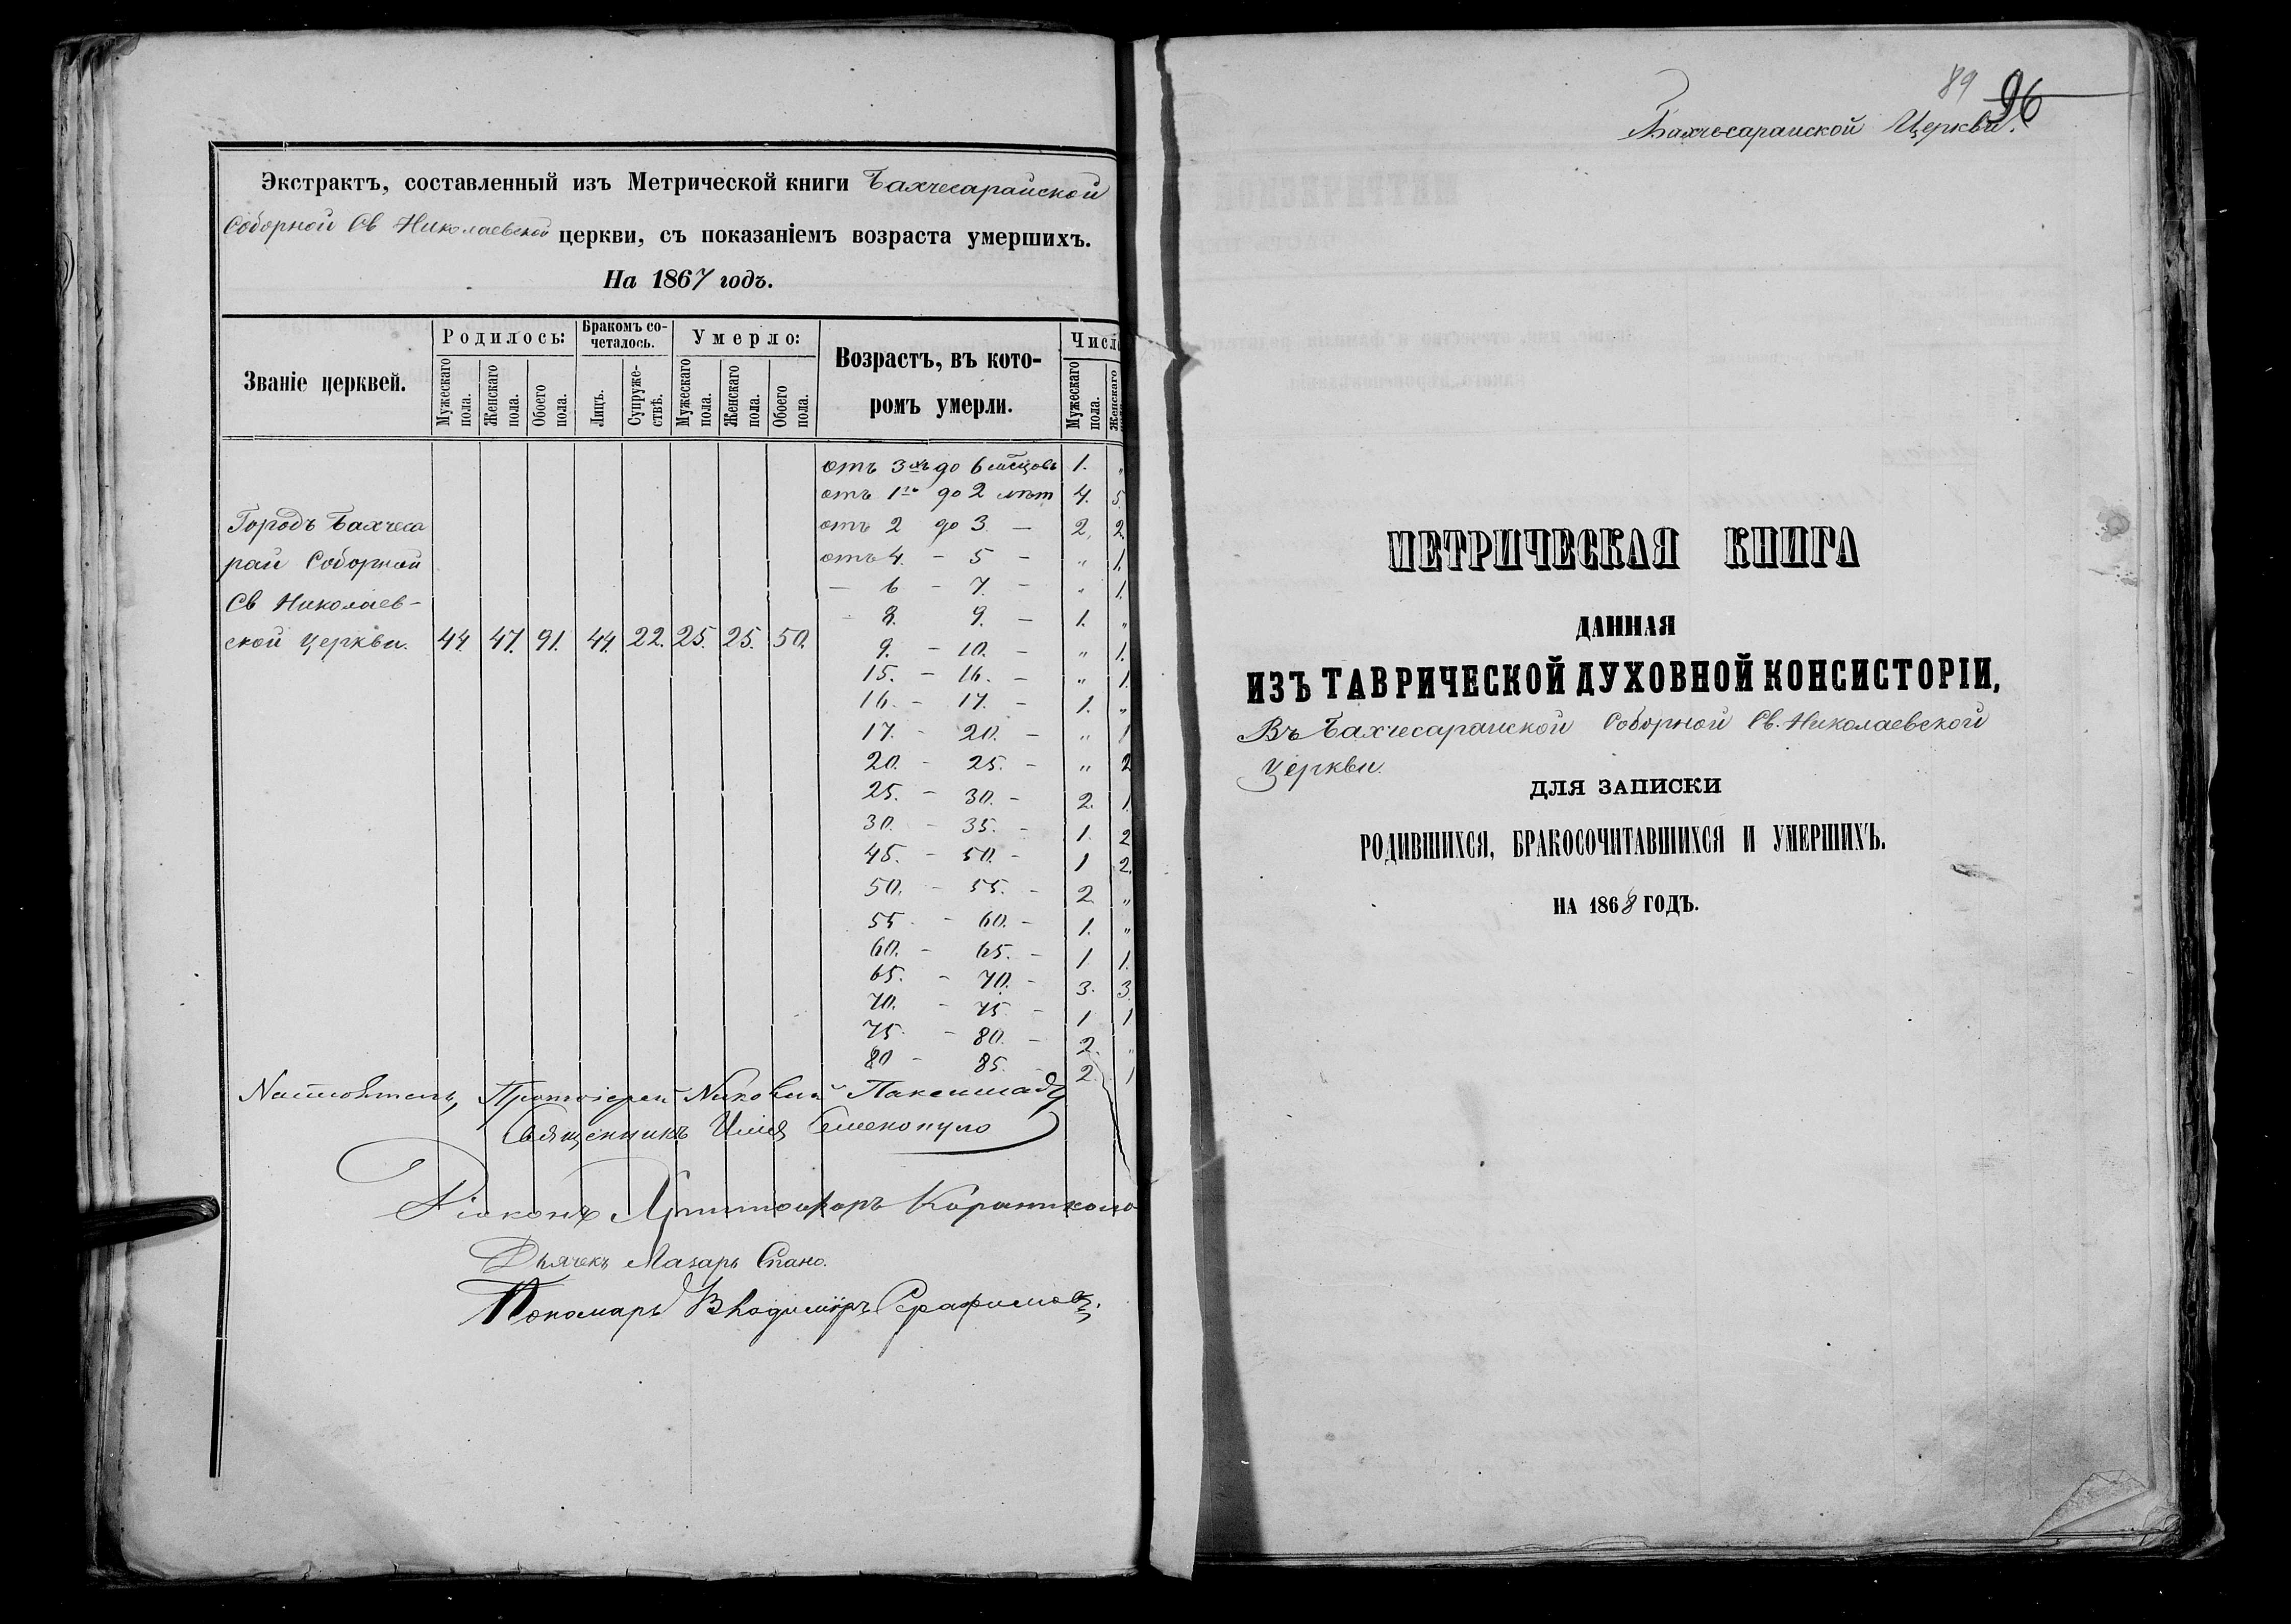 Экстрактъ, составленный изъ Метрической книги Бахчесарайской
Соборной Св Николаевской церкви, съ показаніемъ возраста умершихъ.
На 1867 годъ.
Званіе церквей.
Родилось:
Мужескаго пола.
Женскаго пола.
Обоего пола.
Бракомъ сочеталось.
Лицъ.
Супружествъ.
Умерло:
Мужескаго пола.
Женскаго пола.
Обоего пола.
Возрастъ, въ которомъ умерли.
Число
Мужескаго пола.
Женскаго
Городъ Бахчеса
рай Соборной
Св Николаев-
ской церкви. 44. 47. 91. 44. 22. 25. 25. 50.
отъ 3хъ до 6 мѣсцовъ 1. „
отъ 1го до 2 лѣт 4. 5.
отъ 2 до 3 — 2. 2
отъ 4. — 5 — „ 1.
— 6 — 7. — „ 1.
— 8. 9. — 1. „
9. — 10. — „ 1.
15. — 16. — „ 1.
16. — 17. — 1. „
17. — 20. — „ 1
20. — 25. — „ 2
25. — 30. — 2. 1.
30. — 35. — 1. 2
45. — 50. — 1 2.
50. — 55. — 2 „
55 — 60. — 1. „
60. — 65. — 1 1.
65. — 70. — 3. 3.
70. — 75 — 1 1
75. — 80. — 2. „
80 — 85. 2. 1
Протоіерей
Священникъ Илія
Діаконъ
Дьячекъ Лазарь Спано.
Пономарь Владиміръ Серафимовъ.
89 96
Бахчесарайской Церкви.
МЕТРИЧЕСКАЯ КНИГА
ДАННАЯ
ИЗЪ ТАВРИЧЕСКОЙ ДУХОВНОЙ КОНСИСТОРІИ,
Въ Бахчесарайской Соборной Св. Николаевской
церкви.
ДЛЯ ЗАПИСКИ
РОДИВШИХСЯ, БРАКОСОЧИТАВШИХСЯ И УМЕРШИХЪ.
НА 1868 ГОДЪ.